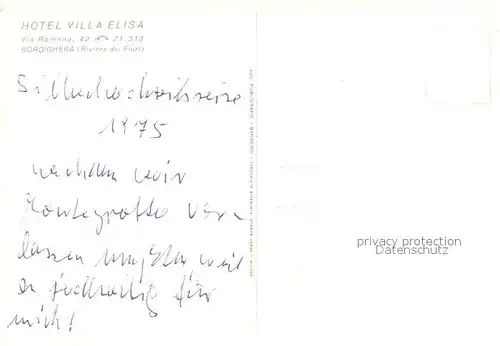 HOTEL VILLA ELISA
Via Romana, 42 ☎ 21.313
BORDIGHERA (Riviera dei Fiori)
Silberhochzeitsreise
1975
nachdem wir
Montegrotto ver-
lassen mußten weil
für
mich!
privacy protection
Datenschutz